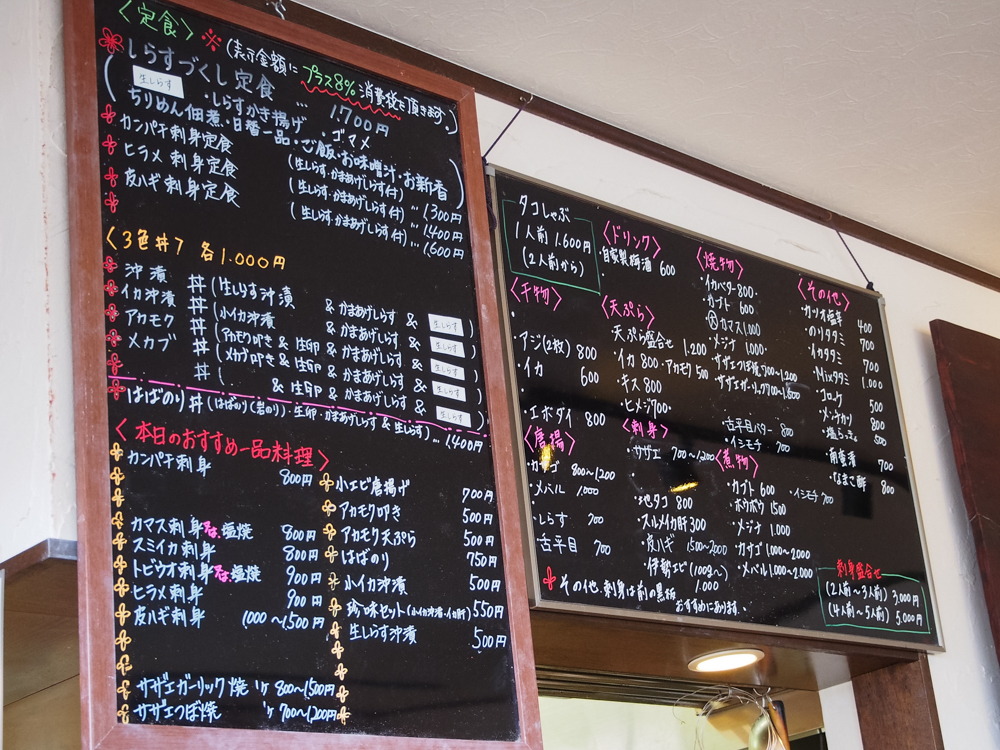 〈定食〉※(表示金額にプラス8%消費税を頂きます。)
しらすづくし定食 … 1.700円
(生しらす ・しらすかき揚げ ・ゴマメ
ちりめん佃煮・日替一品・ご飯・お味噌汁・お新香)
カンパチ刺身定食 (生しらす・かまあげしらす付) … 1300円
ヒラメ刺身定食 (生しらす・かまあげしらす付) … 1.400円
皮ハギ刺身定食 (生しらす・かまあげしらす付) … 1,600円
〈3色丼〉 各1.000円
沖漬丼 (生しらす沖漬 & かまあげしらす & 生しらす)
イカ沖漬丼 (小イカ沖漬 & かまあげしらす & 生しらす)
アカモク丼 (アカモク叩き & 生卵 & かまあげしらす & 生しらす)
メカブ丼 (メカブ叩き & 生卵 & かまあげしらす & 生しらす)
( & 生卵 & かまあげしらす & 生しらす)
はばのり丼 (はばのり(岩のり)・生卵・かまあげしらす & 生しらす) … 1400円
〈本日のおすすめ一品料理〉
カンパチ刺身 800円
カマス刺身又は塩焼 800円
スミイカ刺身 800円
トビウオ刺身又は塩焼 900円
ヒラメ刺身 900円
皮ハギ刺身 1000〜1500円
サザエガーリック焼 1ケ 800〜1,500円
サザエつぼ焼 1ケ 700〜1,200円
小エビ唐揚げ 700円
アカモク叩き 500円
アカモク天ぷら 500円
はばのり 750円
小イカ沖漬 500円
珍味セット(小イカ沖漬・イカ肝) 550円
生しらす沖漬 500円
タコしゃぶ
1人前 1.600円
(2人前から)
〈ドリンク〉
・自家製梅酒 600
〈干物〉
・アジ(2枚) 800
・イカ 600
・エボダイ 800
〈天ぷら〉
天ぷら盛合せ 1.200
・イカ 800 ・アカモク 500
・キス 800
・ヒメジ 700
〈焼物〉
・イカバター 800
・カブト 600
・大カマス 1.000
・メジナ 1.000
・サザエつぼ焼 700〜1,200
・サザエガーリック 700〜1,500
・古平目バター 800
・イシモチ 700
〈その他〉
・カツオ塩辛 400
・のりタタミ 700
・イカタタミ 700
・Mixタタミ 1.000
・コロッケ 500
・メンチカツ 800
500
・南蛮漬 700
・なまこ酢 800
〈唐揚〉
・カサゴ 800〜1,200
・メバル 1,000
・しらす 700
・古平目 700
〈刺身〉
・サザエ 700〜1,200
・地タコ 800
・スルメイカ肝 300
・皮ハギ 1500〜2000
・伊勢エビ(100g〜) 1.000
〈煮物〉
・カブト 600 ・イシモチ 700
・ホウボウ 1500
・メジナ 1.000
・カサゴ 1.000〜2.000
・メバル 1.000〜2.000
その他、刺身は前の黒板
おすすめにあります。
刺身盛合せ
(2人前〜3人前) 3,000円
(4人前〜5人前) 5.000円